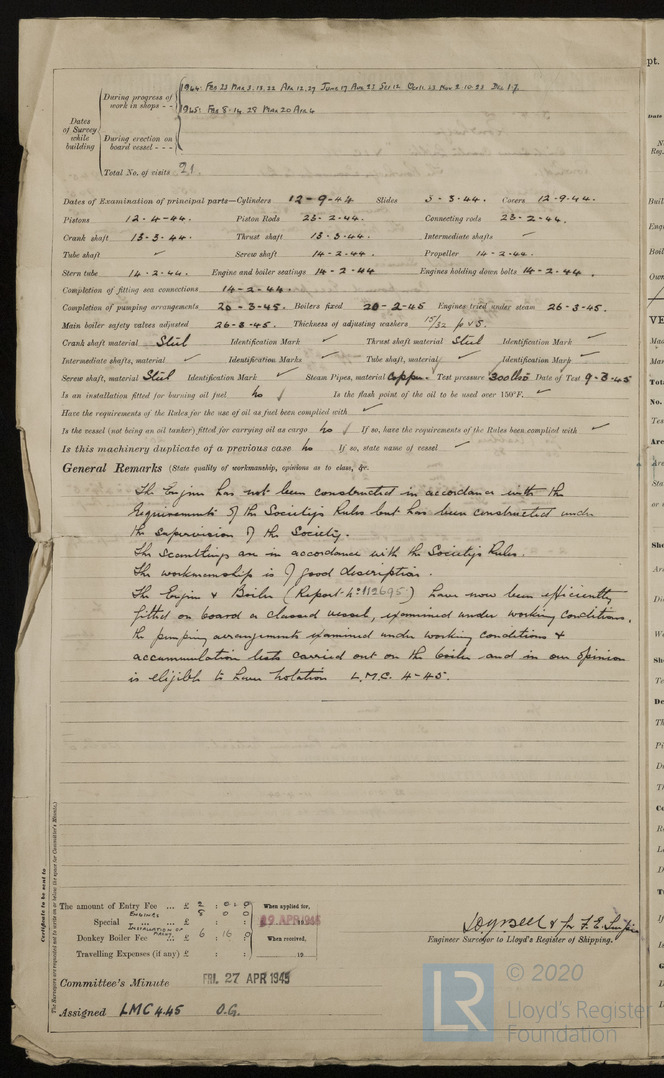 Dates of Survey while building
During progress of work in shops - -
1944: Feb 23 Mar 3.13.22 Apr 12.27 June 17 Aug 23 Sep 12 Oct 11.23 Nov 2.10.23 Dec 1.7
1945: Feb 8.14.28 Mar 20 Apr 4
During erection on board vessel - - -
Total No. of visits 21
Dates of Examination of principal parts—Cylinders 12-9-44 Slides 3-3-44. Covers 12.9.44.
Pistons 12-4-44. Piston Rods 23-2-44. Connecting rods 23-2-44.
Crank shaft 13-3-44. Thrust shaft 13-3-44. Intermediate shafts ✓
Tube shaft ✓ Screw shaft 14-2-44. Propeller 14-2-44.
Stern tube 14-2-44. Engine and boiler seatings 14-2-44 Engines holding down bolts 14-2-44.
Completion of fitting sea connections 14-2-44.
Completion of pumping arrangements 20-3-45. Boilers fixed 20-2-45 Engines tried under steam 26-3-45.
Main boiler safety valves adjusted 26-3-45. Thickness of adjusting washers 15/32 p & s.
Crank shaft material Steel Identification Mark ✓ Thrust shaft material Steel Identification Mark ✓
Intermediate shafts, material ✓ Identification Marks ✓ Tube shaft, material ✓ Identification Mark ✓
Screw shaft, material Steel Identification Mark ✓ Steam Pipes, material Copper. Test pressure 300 lbs Date of Test 9-3-45
Is an installation fitted for burning oil fuel no ✓ Is the flash point of the oil to be used over 150°F. ✓
Have the requirements of the Rules for the use of oil as fuel been complied with ✓
Is the vessel (not being an oil tanker) fitted for carrying oil as cargo no ✓ If so, have the requirements of the Rules been complied with ✓
Is this machinery duplicate of a previous case no If so, state name of vessel ✓
General Remarks (State quality of workmanship, opinions as to class, &c.
The Engine has not been constructed in accordance with the
Requirements of the Society's Rules but has been constructed under
the supervision of the Society.
The scantlings are in accordance with the Society's Rules.
The workmanship is of good description.
The Engine & Boiler (Report No 112695) have now been efficiently
fitted on board a classed vessel, examined under working conditions,
the pumping arrangements examined under working conditions &
accummulation tests carried out on the boiler and in our opinion
is eligible to have notation L.M.C. 4-45.
Certificate to be sent to
The Surveyors are requested not to write on or below the space for Committee's Minute.
The amount of Entry Fee ... £ 2 : 0 : 0 When applied for,
ENGINES
Special ... ... £ 8 0 0 19 APR 1945
INSTALLATION OF
Donkey Boiler Fee ... £ 6 : 16 : 0 When received,
Travelling Expenses (if any) £ : : 19
& for F. E.
Engineer Surveyor to Lloyd's Register of Shipping.
Committee's Minute FRI. 27 APR 1945
Assigned LMC 4.45 O.G.
LR
© 2020
Lloyd's Register
Foundation
pt.